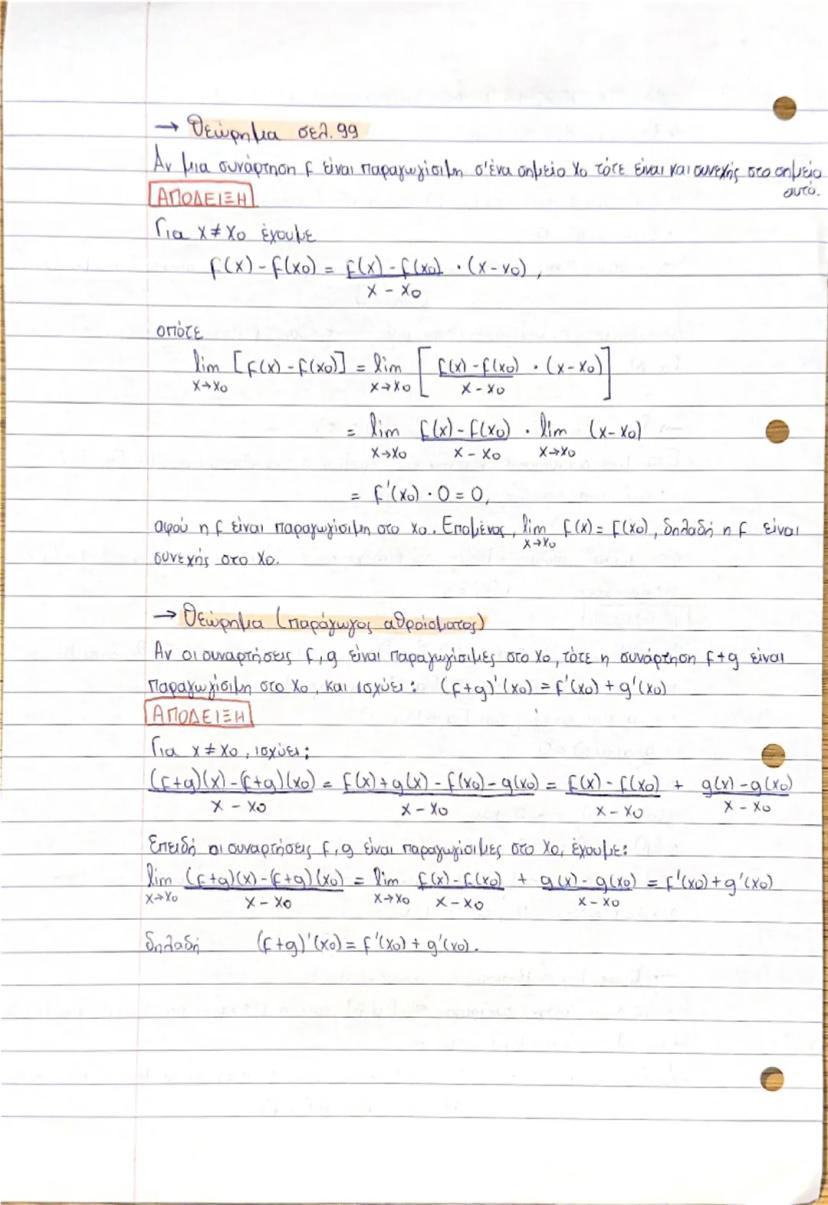 → Θεώρημα σελ.99
Αν μια συνάρτηση f είναι παραγωγίσιμη σ'ένα σημείο x0 τότε είναι και συνεχής στο σημείο
αυτό.
ΑΠΟΔΕΙΞΗ
Για x ≠ x0 έχουμε
f(x) - f(x0) = \frac{f(x) - f(x0)}{x - x0} · (x - x0),
οπότε
lim_{x→x0} [f(x) - f(x0)] = lim_{x→x0} [\frac{f(x) - f(x0)}{x - x0} · (x - x0)]
= lim_{x→x0} \frac{f(x) - f(x0)}{x - x0} · lim_{x→x0} (x - x0)
= f'(x0) · 0 = 0,
αφού η f είναι παραγωγίσιμη στο x0. Επομένως, lim_{x→x0} f(x) = f(x0), δηλαδή η f είναι
συνεχής στο x0.
→ Θεώρημα (παράγωγος αθροίσματος)
Αν οι συναρτήσεις f, g είναι παραγωγίσιμες στο x0, τότε η συνάρτηση f+g είναι
παραγωγίσιμη στο x0, και ισχύει: (f+g)'(x0) = f'(x0) + g'(x0)
ΑΠΟΔΕΙΞΗ
Για x ≠ x0, ισχύει:
\frac{(f+g)(x) - (f+g)(x0)}{x - x0} = \frac{f(x) + g(x) - f(x0) - g(x0)}{x - x0} = \frac{f(x) - f(x0)}{x - x0} + \frac{g(x) - g(x0)}{x - x0}
Επειδή οι συναρτήσεις f, g είναι παραγωγίσιμες στο x0, έχουμε:
lim_{x→x0} \frac{(f+g)(x) - (f+g)(x0)}{x - x0} = lim_{x→x0} \frac{f(x) - f(x0)}{x - x0} + \frac{g(x) - g(x0)}{x - x0} = f'(x0) + g'(x0)
δηλαδή (f+g)'(x0) = f'(x0) + g'(x0).